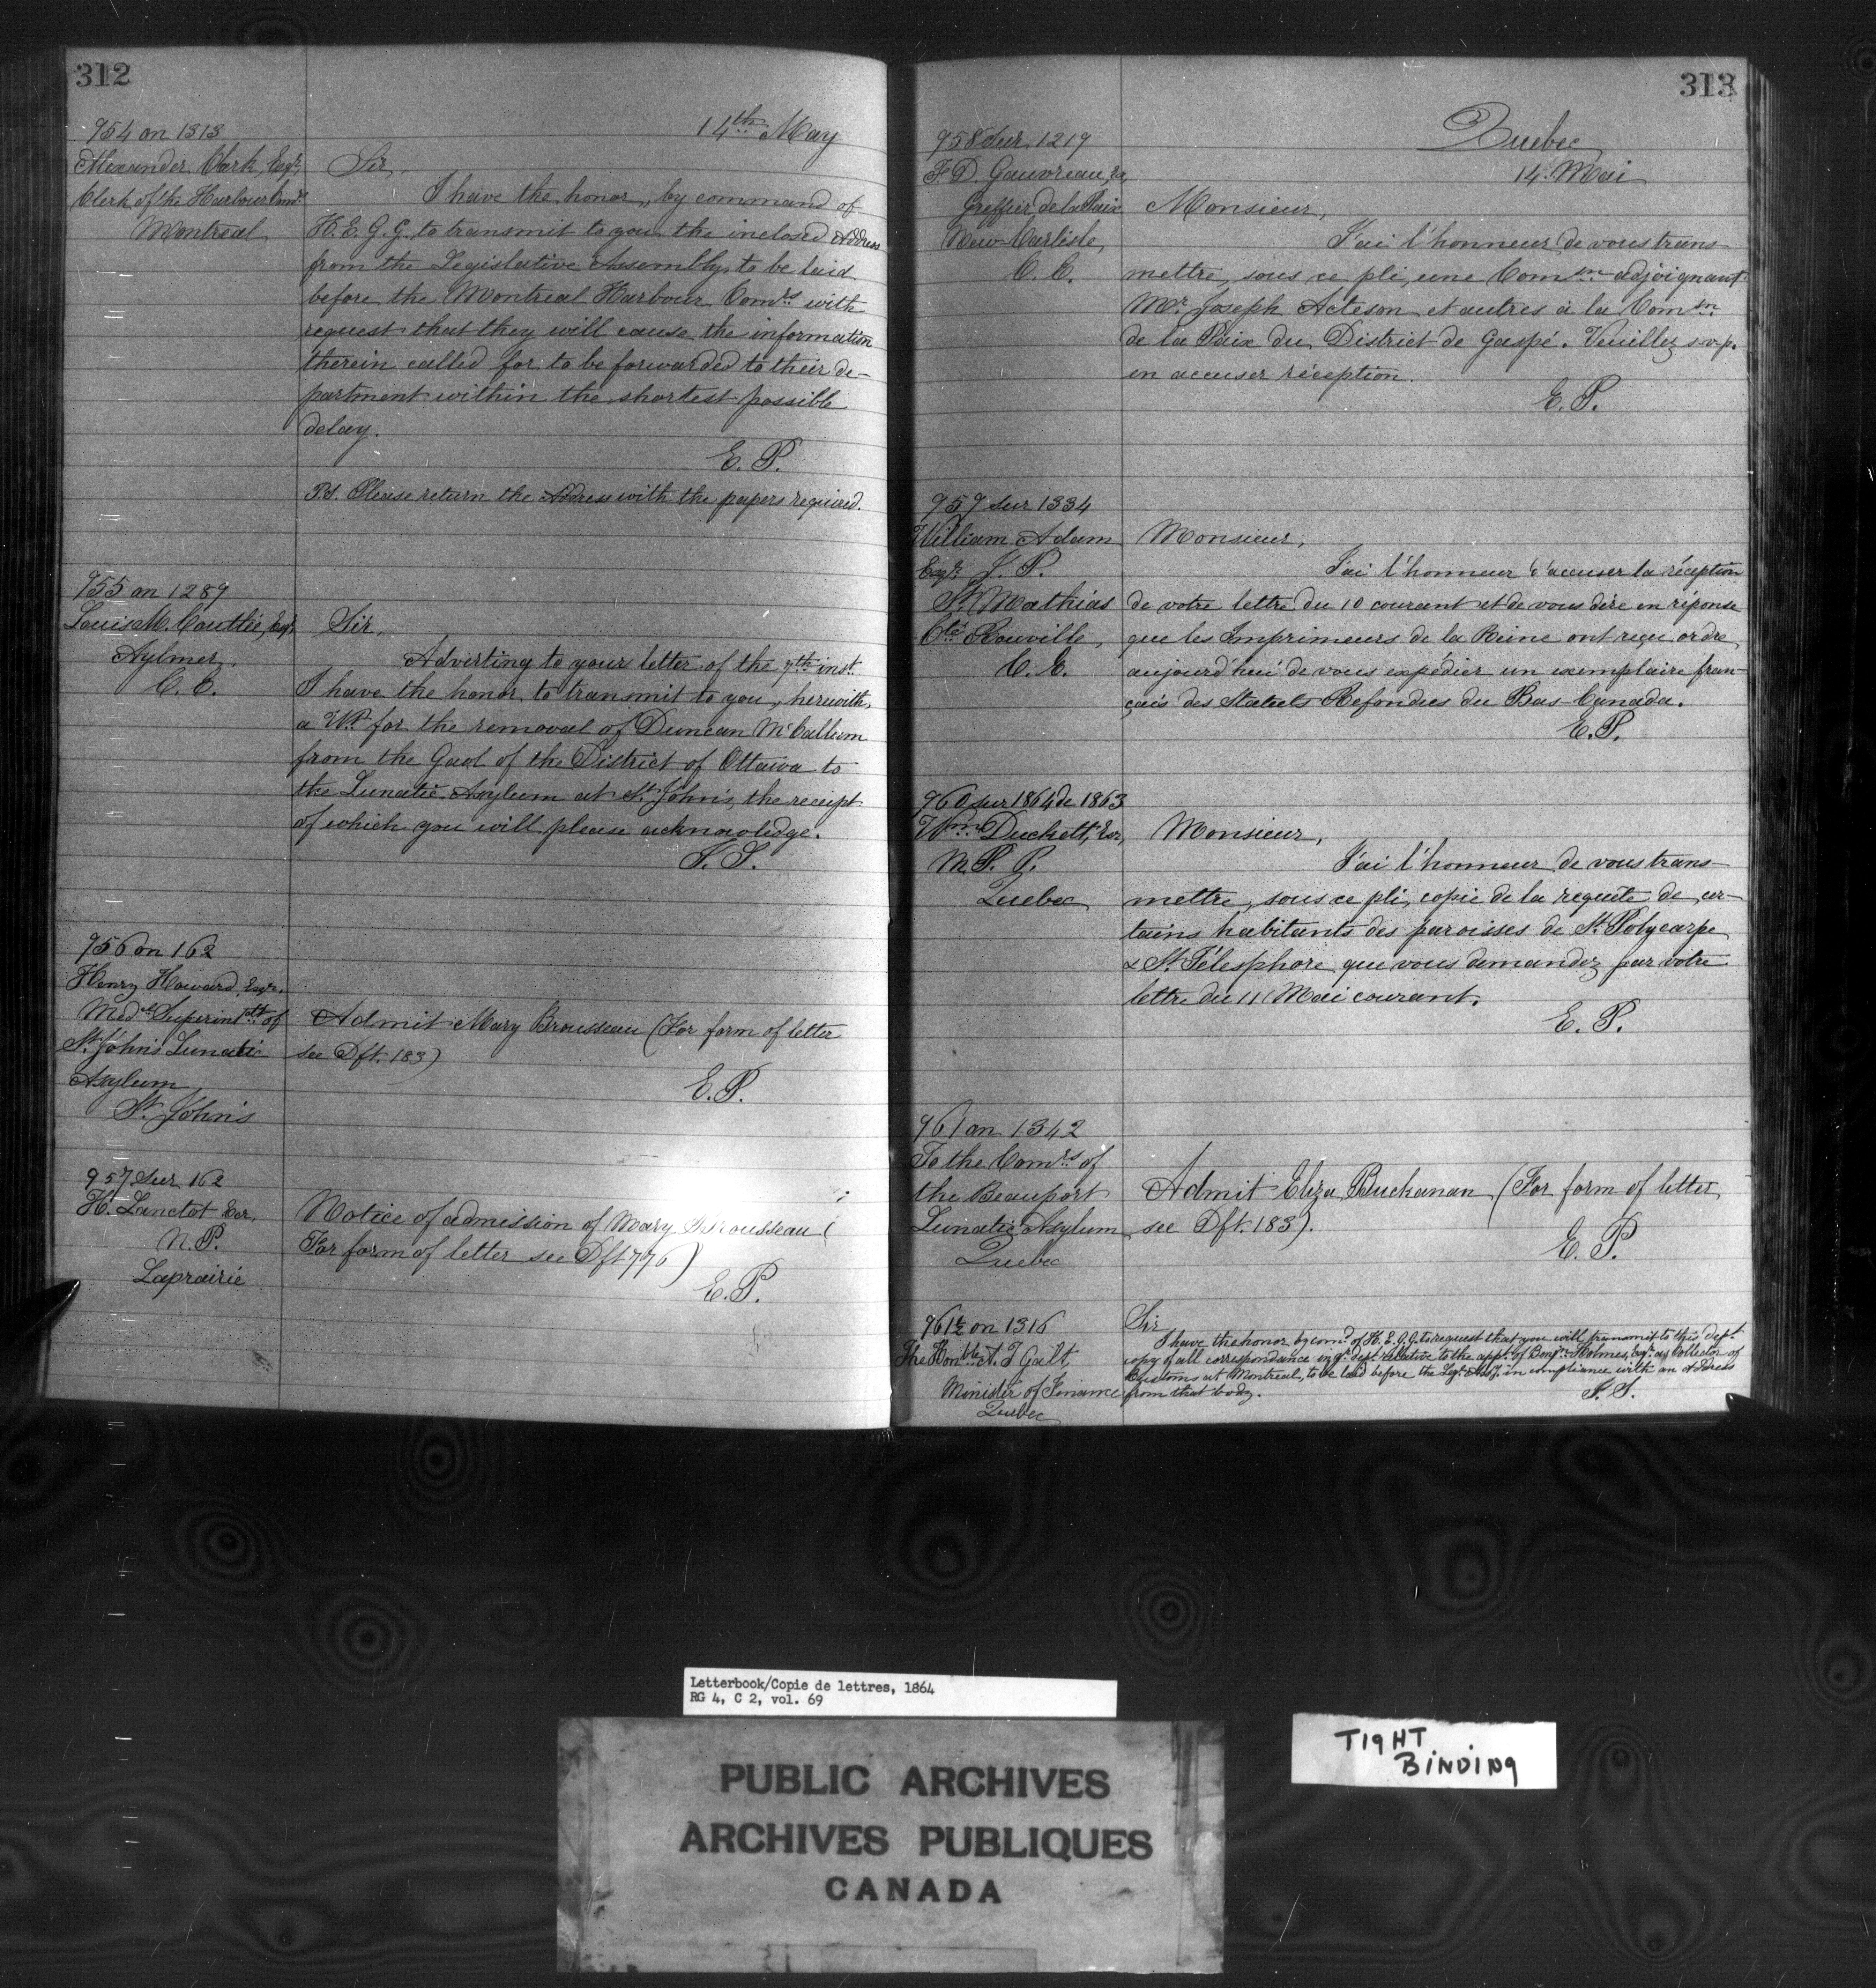 312
14th May
954 on 1313
Alexander Clark, Esqr.
Clerk of the Harbour Comrs
Montreal
Sir,
I have the honor, by command of
H. E. G. G. to transmit to you the inclosed Address
from the Legislative Assembly, to be laid
before the Montreal Harbour Comrs with
request that they will cause the information
therein called for to be forwarded to their de-
partment within the shortest possible
delay.
E. P.
P.S. Please return the Address with the papers required.
955 on 1289
Louis M. Coutlée, Esqr
Aylmer,
C. E.
Sir,
Adverting to your letter of the 7th inst.
I have the honor to transmit to you, herewith,
a Wt for the removal of Duncan McCallum
from the Gaol of the District of Ottawa to
the Lunatic Asylum at St. John's, the receipt
of which you will please acknowledge.
E. P.
956 on 162
Henry Howard, Esqr.
Medal Superintdt of
St. John's Lunatic
Asylum
St. John's
Admit Mary Brousseau (For form of letter
see Dft. 183)
E. P.
957 sur 162
H. Lanctot Ecr.
N. P.
Laprairie
Notice of admission of Mary Brousseau (
For form of letter see Dft 776)
E. P.
313
Quebec
14 Mai
958 sur 1219
F. D. Gauvreau, Er,
Greffier de la Paix
New-Carlisle,
C. E.
Monsieur,
J'ai l'honneur de vous trans-
mettre, sous ce pli, une Comson adjoignant
Mr. Joseph Acteson et autres à la Comson
de la Paix du District de Gaspé. Veuillez s.v.p.
en accuser réception.
E. P.
959 sur 1334
William Adam
Esqr. J. P.
St. Mathias
Cté Rouville,
C. E.
Monsieur,
J'ai l'honneur d'accuser la réception
de votre lettre du 10 courant et de vous dire en réponse
que les Imprimeurs de la Reine ont reçu ordre
aujourd'hui de vous expédier un exemplaire fran-
çais des Statuts Refondus du Bas-Canada.
E. P.
960 sur 1864 de 1863
Wm Duckett, Ecr,
M. P. P.
Quebec
Monsieur,
J'ai l'honneur de vous trans-
mettre, sous ce pli, copie de la requête de cer-
tains habitants des paroisses de St. Polycarpe
& St. Télesphore que vous demandez par votre
lettre du 11 Mai courant.
E. P.
961 on 1342
To the Comrs of
the Beauport
Lunatic Asylum
Quebec
Admit Eliza Buchanan (For form of letter
see Dft. 183).
E. P.
961½ on 1316
The Honble A. T Galt,
Minister of Finance
Quebec
Sir
I have the honor by comd of H. E. G. G. to request that you will transmit to this dept
copy of all correspondance in yr dept relative to the appt of Benjn Holmes, esqr. as Collector of
Customs at Montreal, to be laid before the Leg. Assy. in compliance with an Address
from that body.
E. P.
Letterbook/Copie de lettres, 1864
RG 4, C 2, vol. 69
PUBLIC ARCHIVES
ARCHIVES PUBLIQUES
CANADA
TIGHT
BINDING